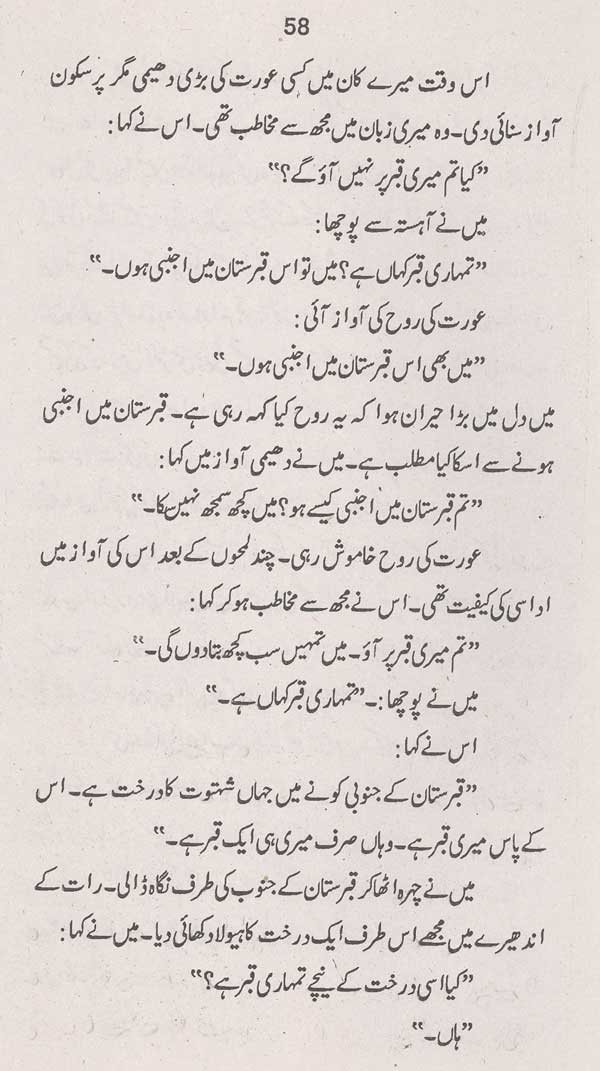 58
اس وقت میرے کان میں کسی عورت کی بڑی دھیمی مگر پرسکون
آواز سنائی دی۔ وہ میری زبان میں مجھ سے مخاطب تھی۔ اس نے کہا:
”کیا تم میری قبر پر نہیں آؤ گے؟“
میں نے آہستہ سے پوچھا:
”تمہاری قبر کہاں ہے؟ میں تو اس قبرستان میں اجنبی ہوں۔“
عورت کی روح کی آواز آئی:
”میں بھی اس قبرستان میں اجنبی ہوں۔“
میں دل میں بڑا حیران ہوا کہ یہ روح کیا کہہ رہی ہے۔ قبرستان میں اجنبی
ہونے سے اسکا کیا مطلب ہے۔ میں نے دھیمی آواز میں کہا:
”تم قبرستان میں اجنبی کیسے ہو؟ میں کچھ سمجھ نہیں سکا۔“
عورت کی روح خاموش رہی۔ چند لمحوں کے بعد اس کی آواز میں
اداسی کی کیفیت تھی۔ اس نے مجھ سے مخاطب ہو کر کہا:
”تم میری قبر پر آؤ۔ میں تمہیں سب کچھ بتا دوں گی۔“
میں نے پوچھا:۔ ”تمہاری قبر کہاں ہے۔“
اس نے کہا:
”قبرستان کے جنوبی کونے میں جہاں شہتوت کا درخت ہے۔ اس
کے پاس میری قبر ہے۔ وہاں صرف میری ہی ایک قبر ہے۔“
میں نے چہرہ اٹھا کر قبرستان کے جنوب کی طرف نگاہ ڈالی۔ رات کے
اندھیرے میں مجھے اس طرف ایک درخت کا ہیولا دکھائی دیا۔ میں نے کہا:
”کیا اسی درخت کے نیچے تمہاری قبر ہے؟“
”ہاں۔“